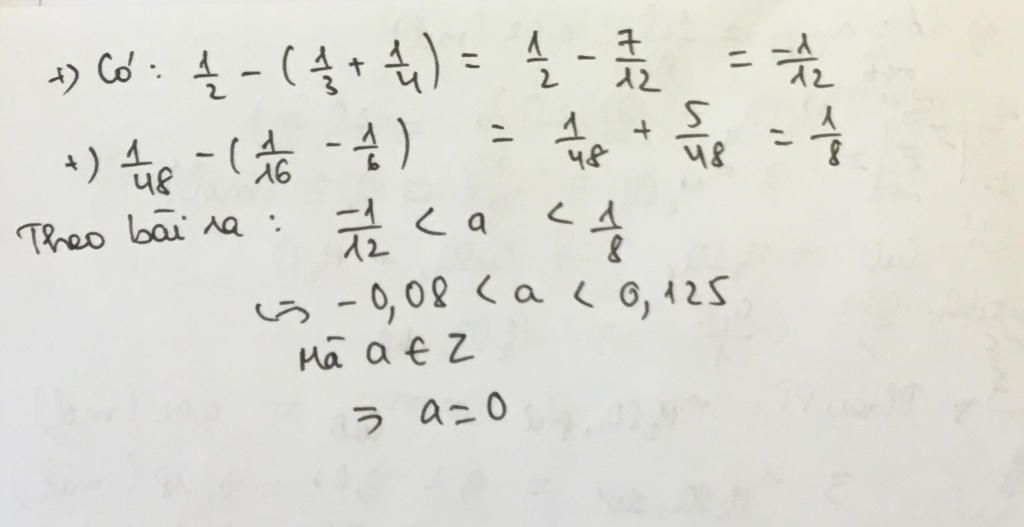 +) Có: 1/2 - (1/3 + 1/4) = 1/2 - 7/12 = -1/12
+) 1/48 - (1/16 - 1/6) = 1/48 + 5/48 = 1/8
Theo bài ra: -1/12 < a < 1/8
⇔ -0,08 < a < 0,125
Mà a ∈ Z
⇒ a = 0